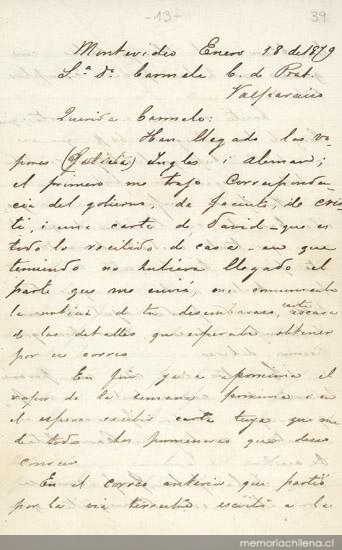 -13-
39
Montevideo Enero 18 de 1879
S.ª D.ª Carmela C. de Prat.
Valparaiso
Querida Carmela:
Han llegado los va-
pores (Galicia) Ingles i Aleman;
el primero me trajo corresponden-
cia del gobierno, de Jacinto, de
i una carta de David - que es
todo lo recibido de casa - en que
temiendo no hubiera llegado el
parte que me envió, me comunicaba
la noticia de tu desembarazo,
de los detalles que esperaba obtener
por su correo
En fin ya se aproxima el
vapor de la semana proxima i en
el espero recibir carta tuya que me
de todos los pormenores que deseo
conocer
En el correo anterior que partió
por la via terrestre escribí a la
memoriachilena.cl